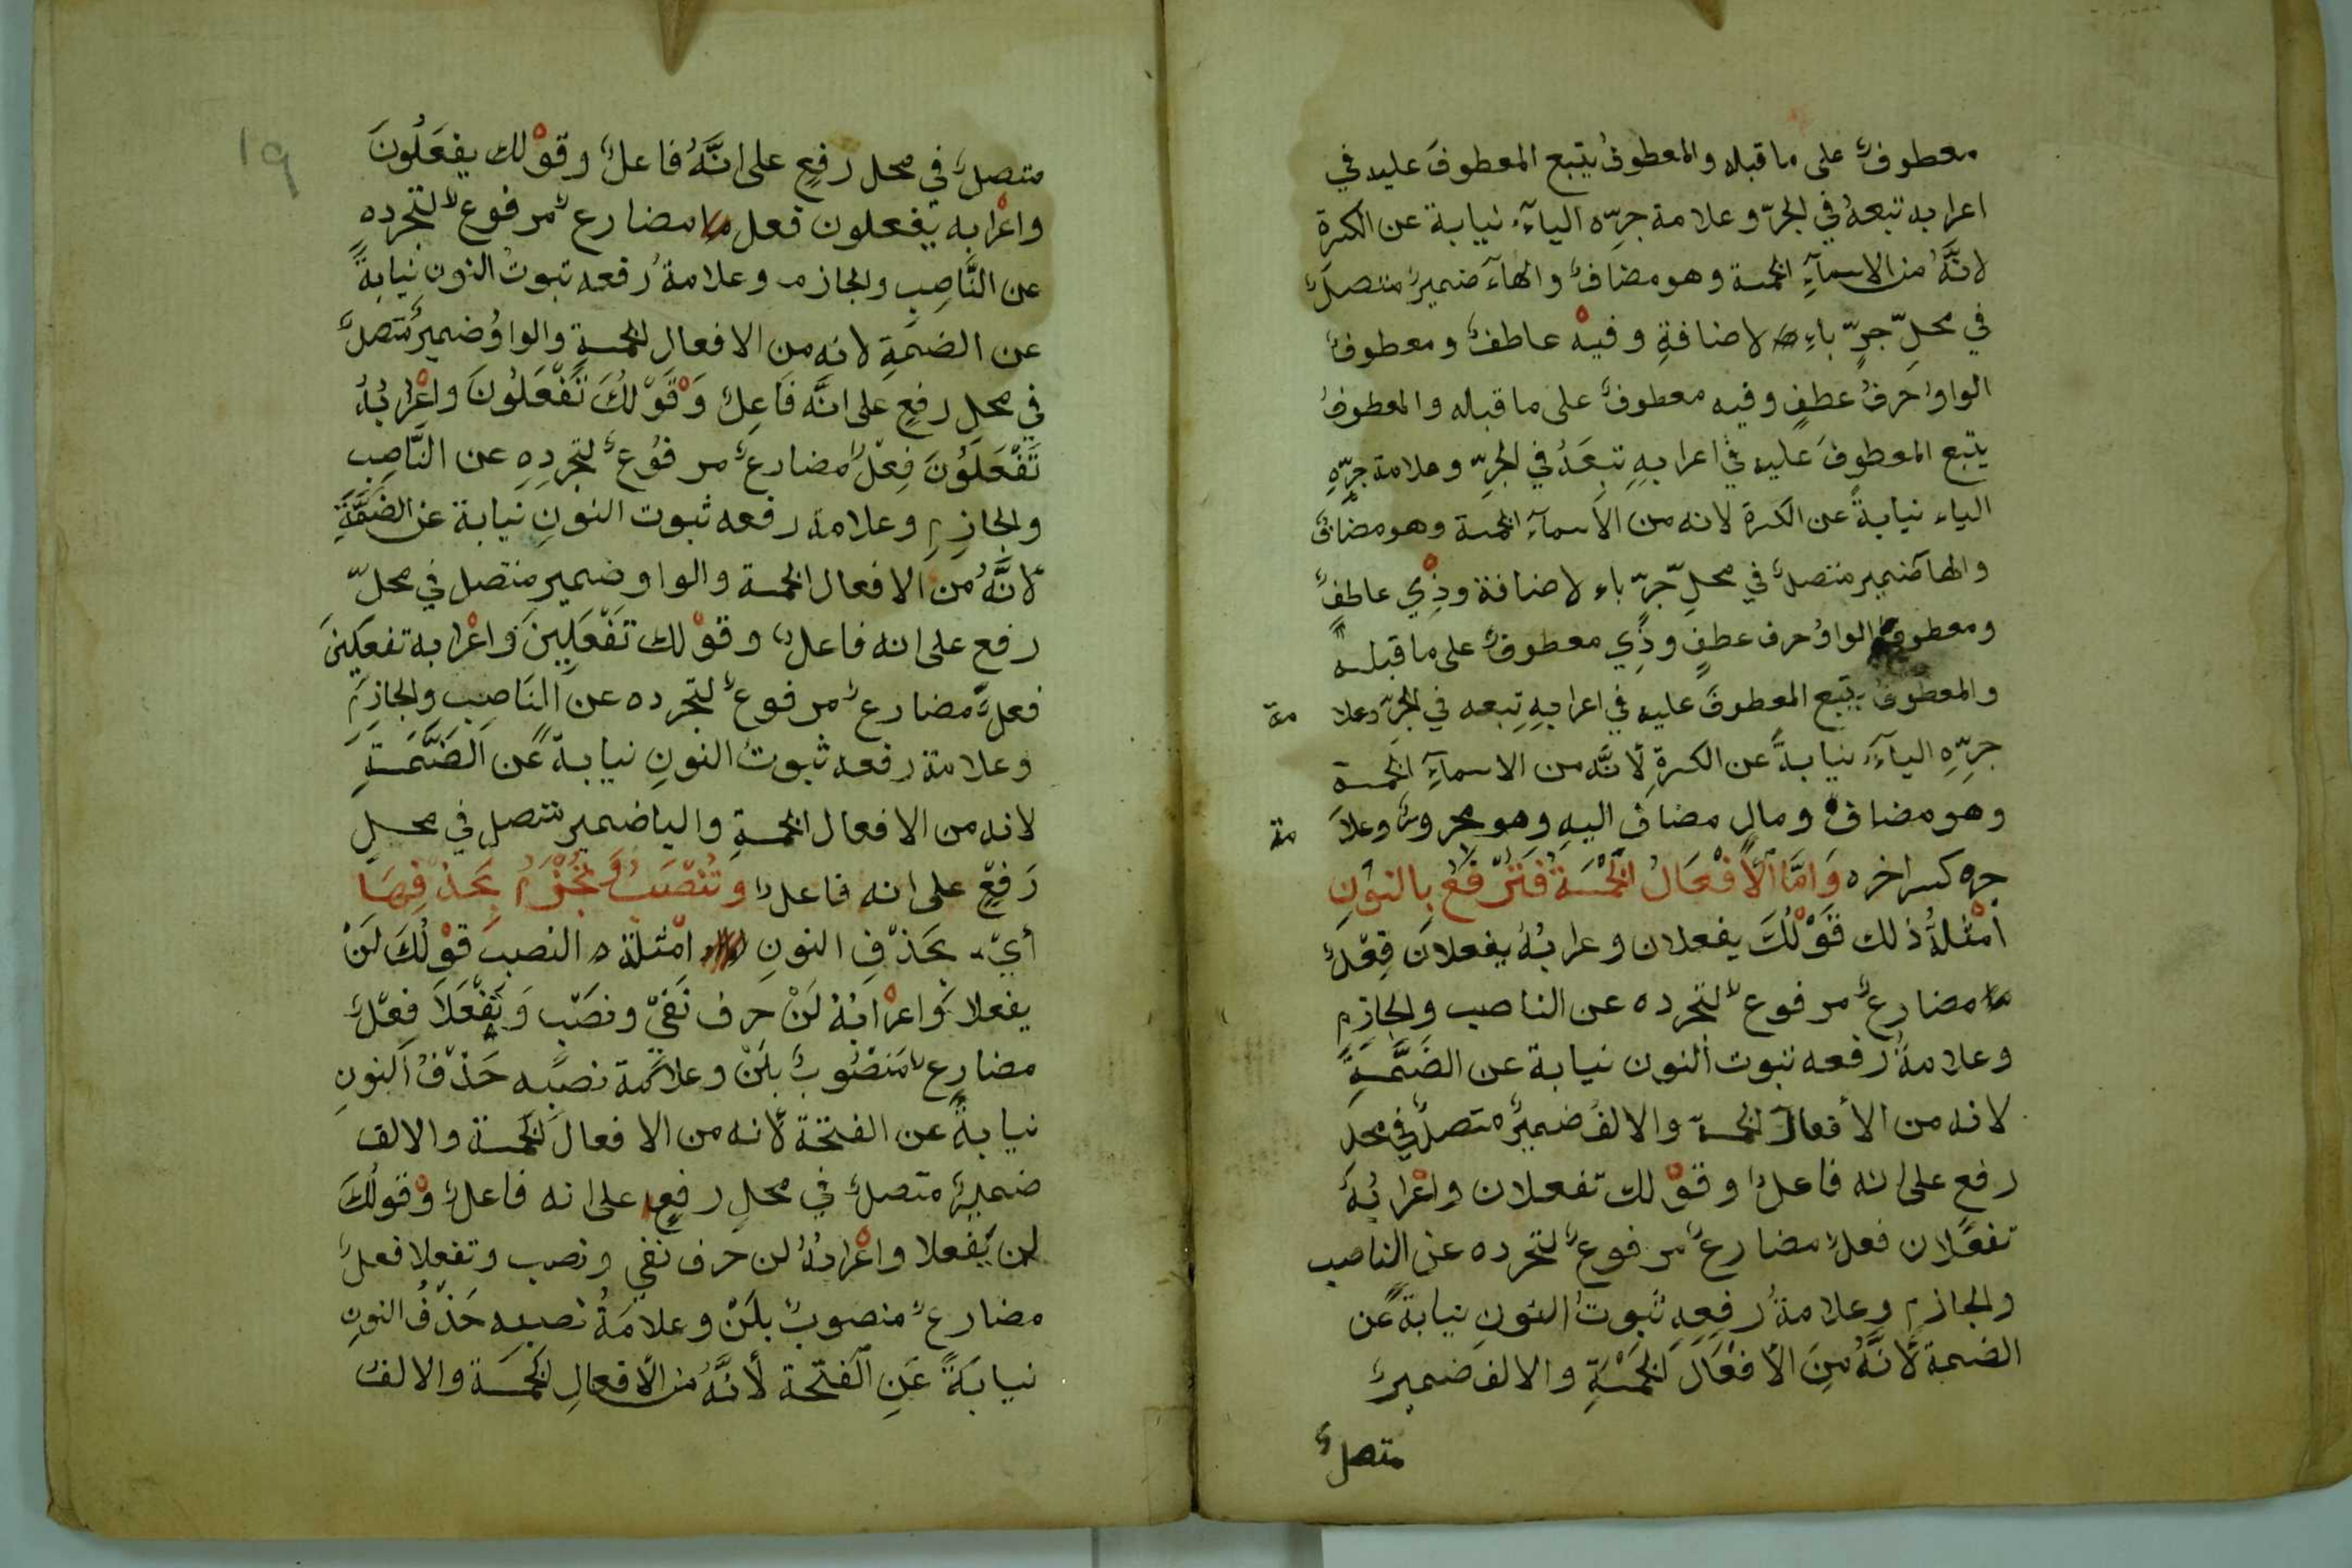 معطوفٌ على ما قبله والمعطوفُ يتبع المعطوفَ عليه في
اعرابه تبعهُ في الجرّ وعلامة جرّه الياءُ نيابة عن الكسرة
لانَّهُ من الاسمآءِ الخمسة وهو مضافٌ والهآء ضميرٌ متصلٌ
في محلِّ جرٍّ باءِ لاضافةِ وفيهْ عاطفٌ ومعطوفٌ
الواو حرفُ عطفٍ وفيه معطوفٌ على ما قبله والمعطوفُ
يتبع المعطوفَ عليه في اعرابهِ تبعَهُ في الجرِّ وعلامة جرِّهِ
الياء نيابةً عن الكسرة لانه من الأسمآء الخمسة وهو مضافٌ
والهآ ضمير متصلٌ في محلِّ جرّ باء لاضافة وذِي عاطفٌ
ومعطوفٌ الواوُ حرف عطفٍ وذِي معطوفٌ على ما قبله
والمعطوفُ يتبع المعطوفَ عليه في اعرابهِ تبعه في الجرّ وعلا مة
جرِّهِ اليآءُ نيابةً عن الكسرةِ لأنَّه من الاسمآءِ الخمسة
وهو مضافٌ ومالٍ مضاف اليهِ وهو مجرورٌ وعلا مة
جره كسر اخره وَامَّا الأَفْعَالُ الخَمْسَةُ فَتُرْفَعُ بالنونِ
امْثلةُ ذلك قَوْلُكَ يفعلان وعرابُهُ يفعلان فِعْلٌ
مضارعٌ مرفوعٌ لتجرده عن الناصب والجازم
وعلامةُ رفعه ثبوت النون نيابة عن الضَّمَّةِ
لانه من الأفعال الخمسة والالفُ ضميرٌ متصلٌ في محل
رفع على انه فاعلٌ وقوْلك تفعلان واعْرابُهُ
تفعلان فعلٌ مضارعٌ مرفوعٌ لتجرده عن الناصب
والجازم وعلامةُ رفعِهِ ثبوتُ النون نيابةً عن
الضمة لأنَّهُ مِنَ الأفْعَالِ الخَمْسَةِ والالف ضميرٌ
متصلٌ
١٩
متصلٌ في محل رفعٍ على انَّهُ فاعلٌ وقوْلك يفعَلُونَ
واعْرابه يفعلون فعل مضارعٌ مرفوعٌ لتجرده
عن النَّاصِبِ والجازم وعلامةُ رفعه ثبوتُ النون نيابةً
عن الضمَّةِ لانه من الافعال الخمسةِ والواوُ ضميرٌ متصلٌ
في محلِ رفعٍ على انَّه فَاعِلٌ وَقَوْلُكَ تَفْعَلُونَ واعْرابُهُ
تَفْعَلُونَ فِعْلٌ مضارعٌ مرفُوعٌ لتجرِدِهِ عن النَّاصِبِ
والجازمِ وعلامة رفعه ثبوت النونِ نيابة عن الضَمَّةِ
لأنَّهُ مِنَ الافعال الخمسة والواو ضمير متصل في محلّ
رفع على انه فاعلٌ وقوْلك تَفْعَلِينَ وَاعْرابه تفعلينَ
فعلٌ مضارعٌ مرفوعٌ لتجرده عن النَاصِبِ والجازِمِ
وعلامة رفعه ثبوتُ النونِ نيابةً عَن الضَّمَّةِ
لانه من الافعال الخمسةِ واليا ضمير متصل في محلِ
رَفْعٍ على انه فاعلٌ وتُنْصَبُ وَتُجْزَمُ بحَذْفِهَا
أيْ بحَذْفِ النونِ امْثلة النصبِ قوْلُكَ لَنْ
يفعلا وَاعْرَابُهُ لَنْ حرف نَفْيٍ ونصَبٍ وَيَفْعَلَا فِعْلٌ
مضارِعٌ مَنْصُوبٌ بلَنْ وعلامة نصبه حَذْفُ النونِ
نيابةً عن الفتحة لأنه من الافعال الخمسة والالف
ضميرٌ متصلٌ في محلِ رفعٍ على انه فاعلٌ وْقولُكَ
لن تفعلا واعْرابُهُ لن حرف نفي ونصب وتفعلا فعلٌ
مضارعٌ منصوبٌ بلَنْ وعلامَةُ نصبه حَذْفُ النونِ
نيابَةً عَنِ الفَتْحَة لأنَّهُ من الأفعالِ الخَمْسَة والالف